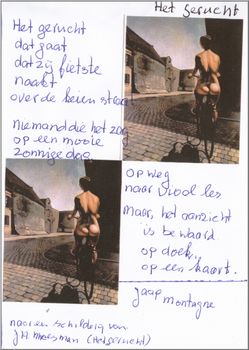 Het gerucht
Het gerucht
dat gaat
dat zij fietste
naakt
over de keien straat
Niemand die het zag
op een mooie
zonnige dag
op weg
naar viool les
Maar, het aanzicht
is bewaard
op doek,
op een kaart.
Jaap
Montagne
naar een schilderij van
J.H. Moesman (Het gerucht)